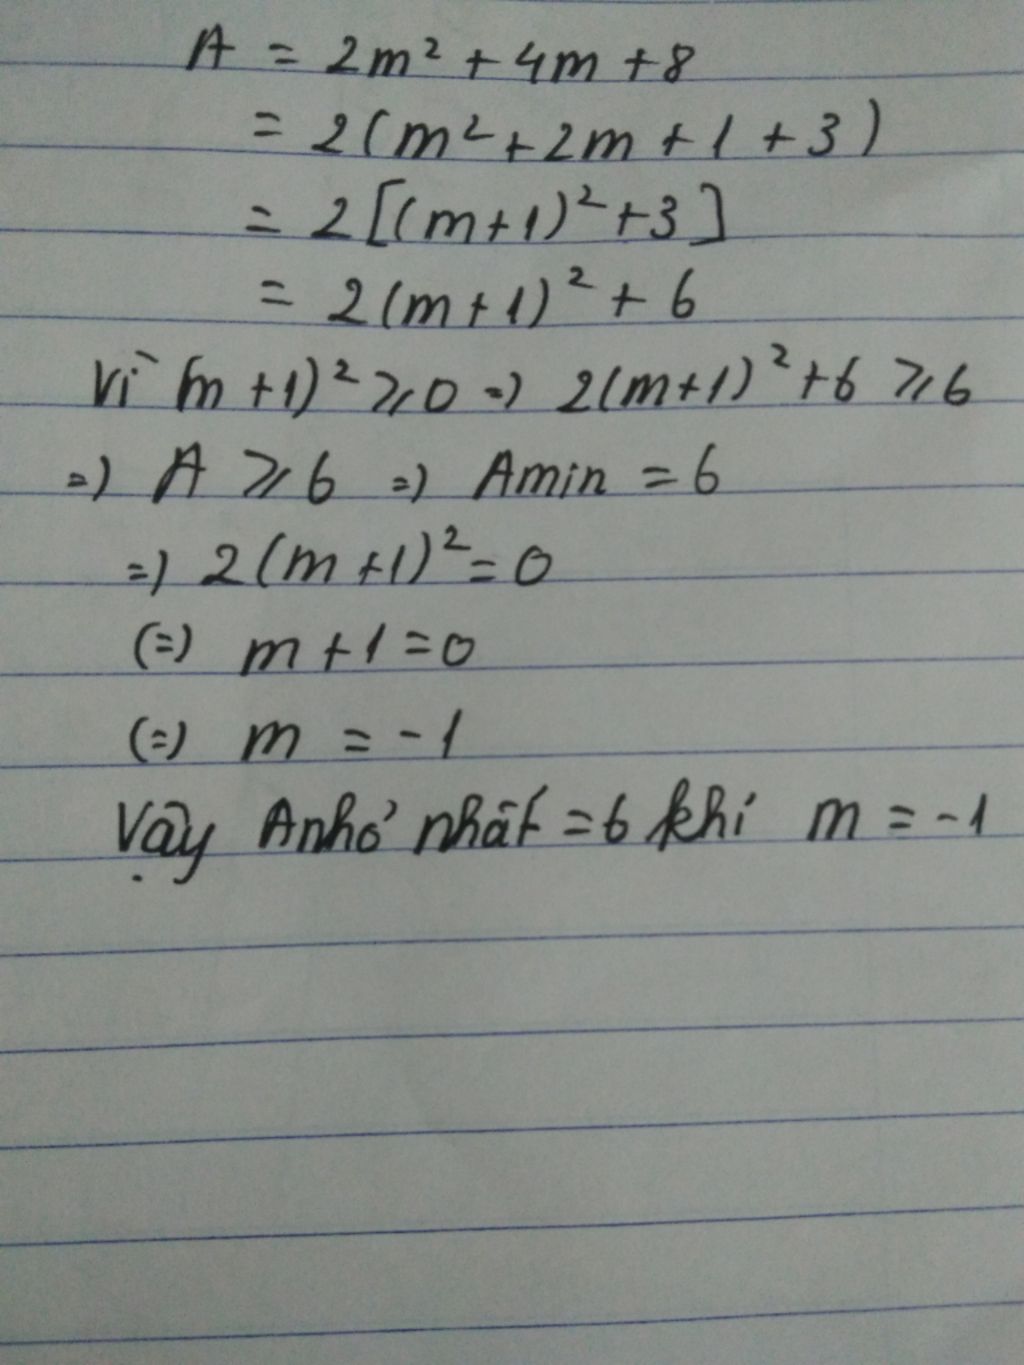 A = 2m² + 4m + 8
= 2(m² + 2m + 1 + 3)
= 2[(m+1)² + 3]
= 2(m+1)² + 6
Vì (m+1)² ⩾ 0 => 2(m+1)² + 6 ⩾ 6
=> A ⩾ 6 => Amin = 6
=> 2(m+1)² = 0
(=) m + 1 = 0
(=) m = -1
Vậy A nhỏ nhất = 6 khi m = -1